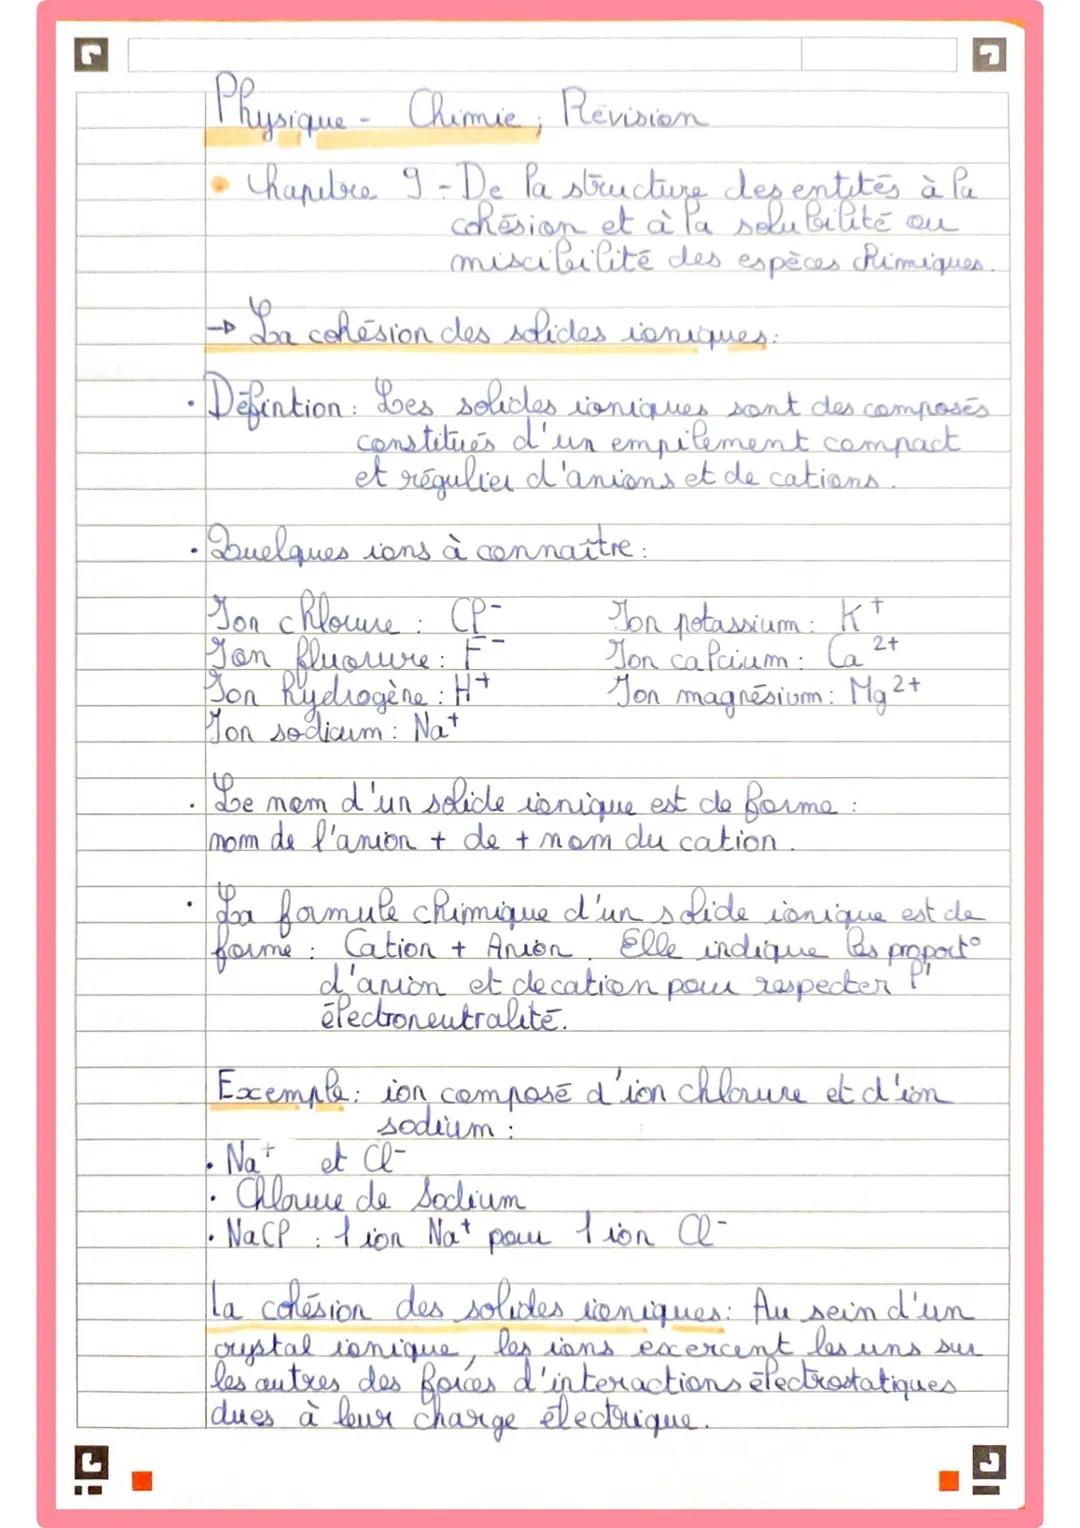 Physique - Chimie ; Révision
• Chapitre 9 - De la structure des entités à la
cohésion et à la solubilité ou
miscibilité des espèces chimiques.
→ La cohésion des solides ioniques :
• Défintion : Les solides ioniques sont des composés
constitués d'un empilement compact
et régulier d'anions et de cations.
• Quelques ions à connaître :
Ion chlorure : Cl⁻ Ion potassium : K⁺
Ion fluorure : F⁻ Ion calcium : Ca²⁺
Ion hydrogène : H⁺ Ion magnésium : Mg²⁺
Ion sodium : Na⁺
• Le nom d'un solide ionique est de forme :
nom de l'anion + de + nom du cation.
• La formule chimique d'un solide ionique est de
forme : Cation + Anion. Elle indique les proport°
d'anion et de cation pour respecter l'
électroneutralité.
Exemple : ion composé d'ion chlorure et d'ion
sodium :
• Na⁺ et Cl⁻
• Chlorure de Sodium
• NaCl : 1 ion Na⁺ pour 1 ion Cl⁻
La cohésion des solides ioniques : Au sein d'un
crystal ionique, les ions excercent les uns sur
les autres des forces d'interactions électrostatiques
dues à leur charge électrique.